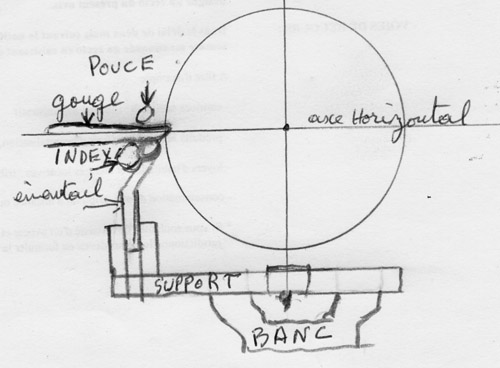 POUCE
gouge
axe Horizontal
INDEX
éventail
SUPPORT
BANC